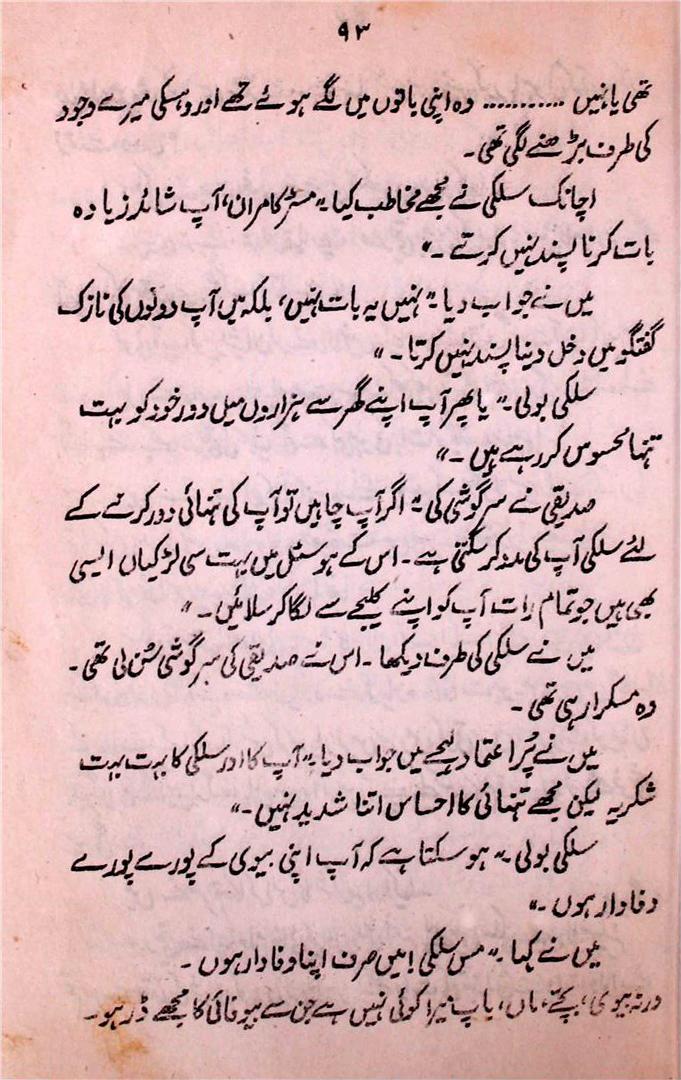 ۹۳
تھی یا نہیں ........... وہ اپنی باتوں میں لگے ہوئے تھے اور وہسکی میرے وجود
کی طرف بڑھنے لگی تھی۔
اچانک سلکی نے مجھے مخاطب کیا۔" مسٹر کامران، آپ شائد زیادہ
بات کرنا پسند نہیں کرتے۔"
میں نے جواب دیا۔" نہیں یہ بات نہیں، بلکہ میں آپ دونوں کی نازک
گفتگو میں دخل دینا پسند نہیں کرتا۔"
سلکی بولی۔" یا پھر آپ اپنے گھر سے ہزاروں میل دور خود کو بہت
تنہا محسوس کر رہے ہیں۔"
صدیقی نے سرگوشی کی۔" اگر آپ چاہیں تو آپ کی تنہائی دور کرنے کے
لئے سلکی آپ کی مدد کر سکتی ہے۔ اس کے ہوسٹل میں بہت سی لڑکیاں ایسی
بھی ہیں جو تمام رات آپ کو اپنے کلیجے سے لگا کر سلائیں۔"
میں نے سلکی کی طرف دیکھا۔ اس نے صدیقی کی سرگوشی سُن لی تھی۔
وہ مسکرا رہی تھی۔
میں نے پُر اعتماد لہجے میں جواب دیا۔" آپ کا اور سلکی کا بہت بہت
شکریہ لیکن مجھے تنہائی کا احساس اتنا شدید نہیں۔"
سلکی بولی۔" ہو سکتا ہے کہ آپ اپنی بیوی کے پورے پورے
وفادار ہوں۔"
میں نے کہا۔" مس سلکی! میں صرف اپنا وفادار ہوں۔
ورنہ بیوی، بچّے، ماں، باپ میرا کوئی نہیں ہے جن سے بیوفائی کا مجھے ڈر ہو۔